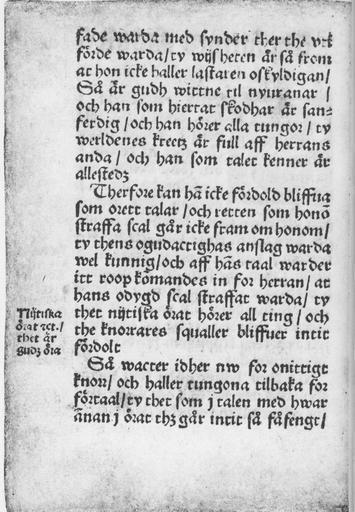 fade warda med synder ther the vti
förde warda/ ty wijsheten är så from
at hon icke haller lastaren oskyldigan/
Så är gudh wittne til nyuranar /
och han som hiertat skodhar är san-
ferdig / och han hörer alla tungor / ty
werldenes kretz är full aff herrans
anda / och han som talet kenner är
allestedz
Therfore kan hā icke fördold bliffua
som orett talar / och retten som honō
straffa scal går icke fram om honom/
ty thens ogudactighas anslag warda
wel kunnig/ och aff hās taal warder
itt roop kōmandes in for herran/ at
hans odygd scal straffat warda/ ty
thet nijtiska örat hörer all ting / och
the knorrares squaller bliffuer intit
fördolt
Nijtiska
örat etc./
thet är
gudz öra
Så wacter idher nw for onittigt
knorr/ och haller tungona tilbaka for
förtaal/ ty thet som j talen med hwar
ānan j örat thz går intit så fåfengt/